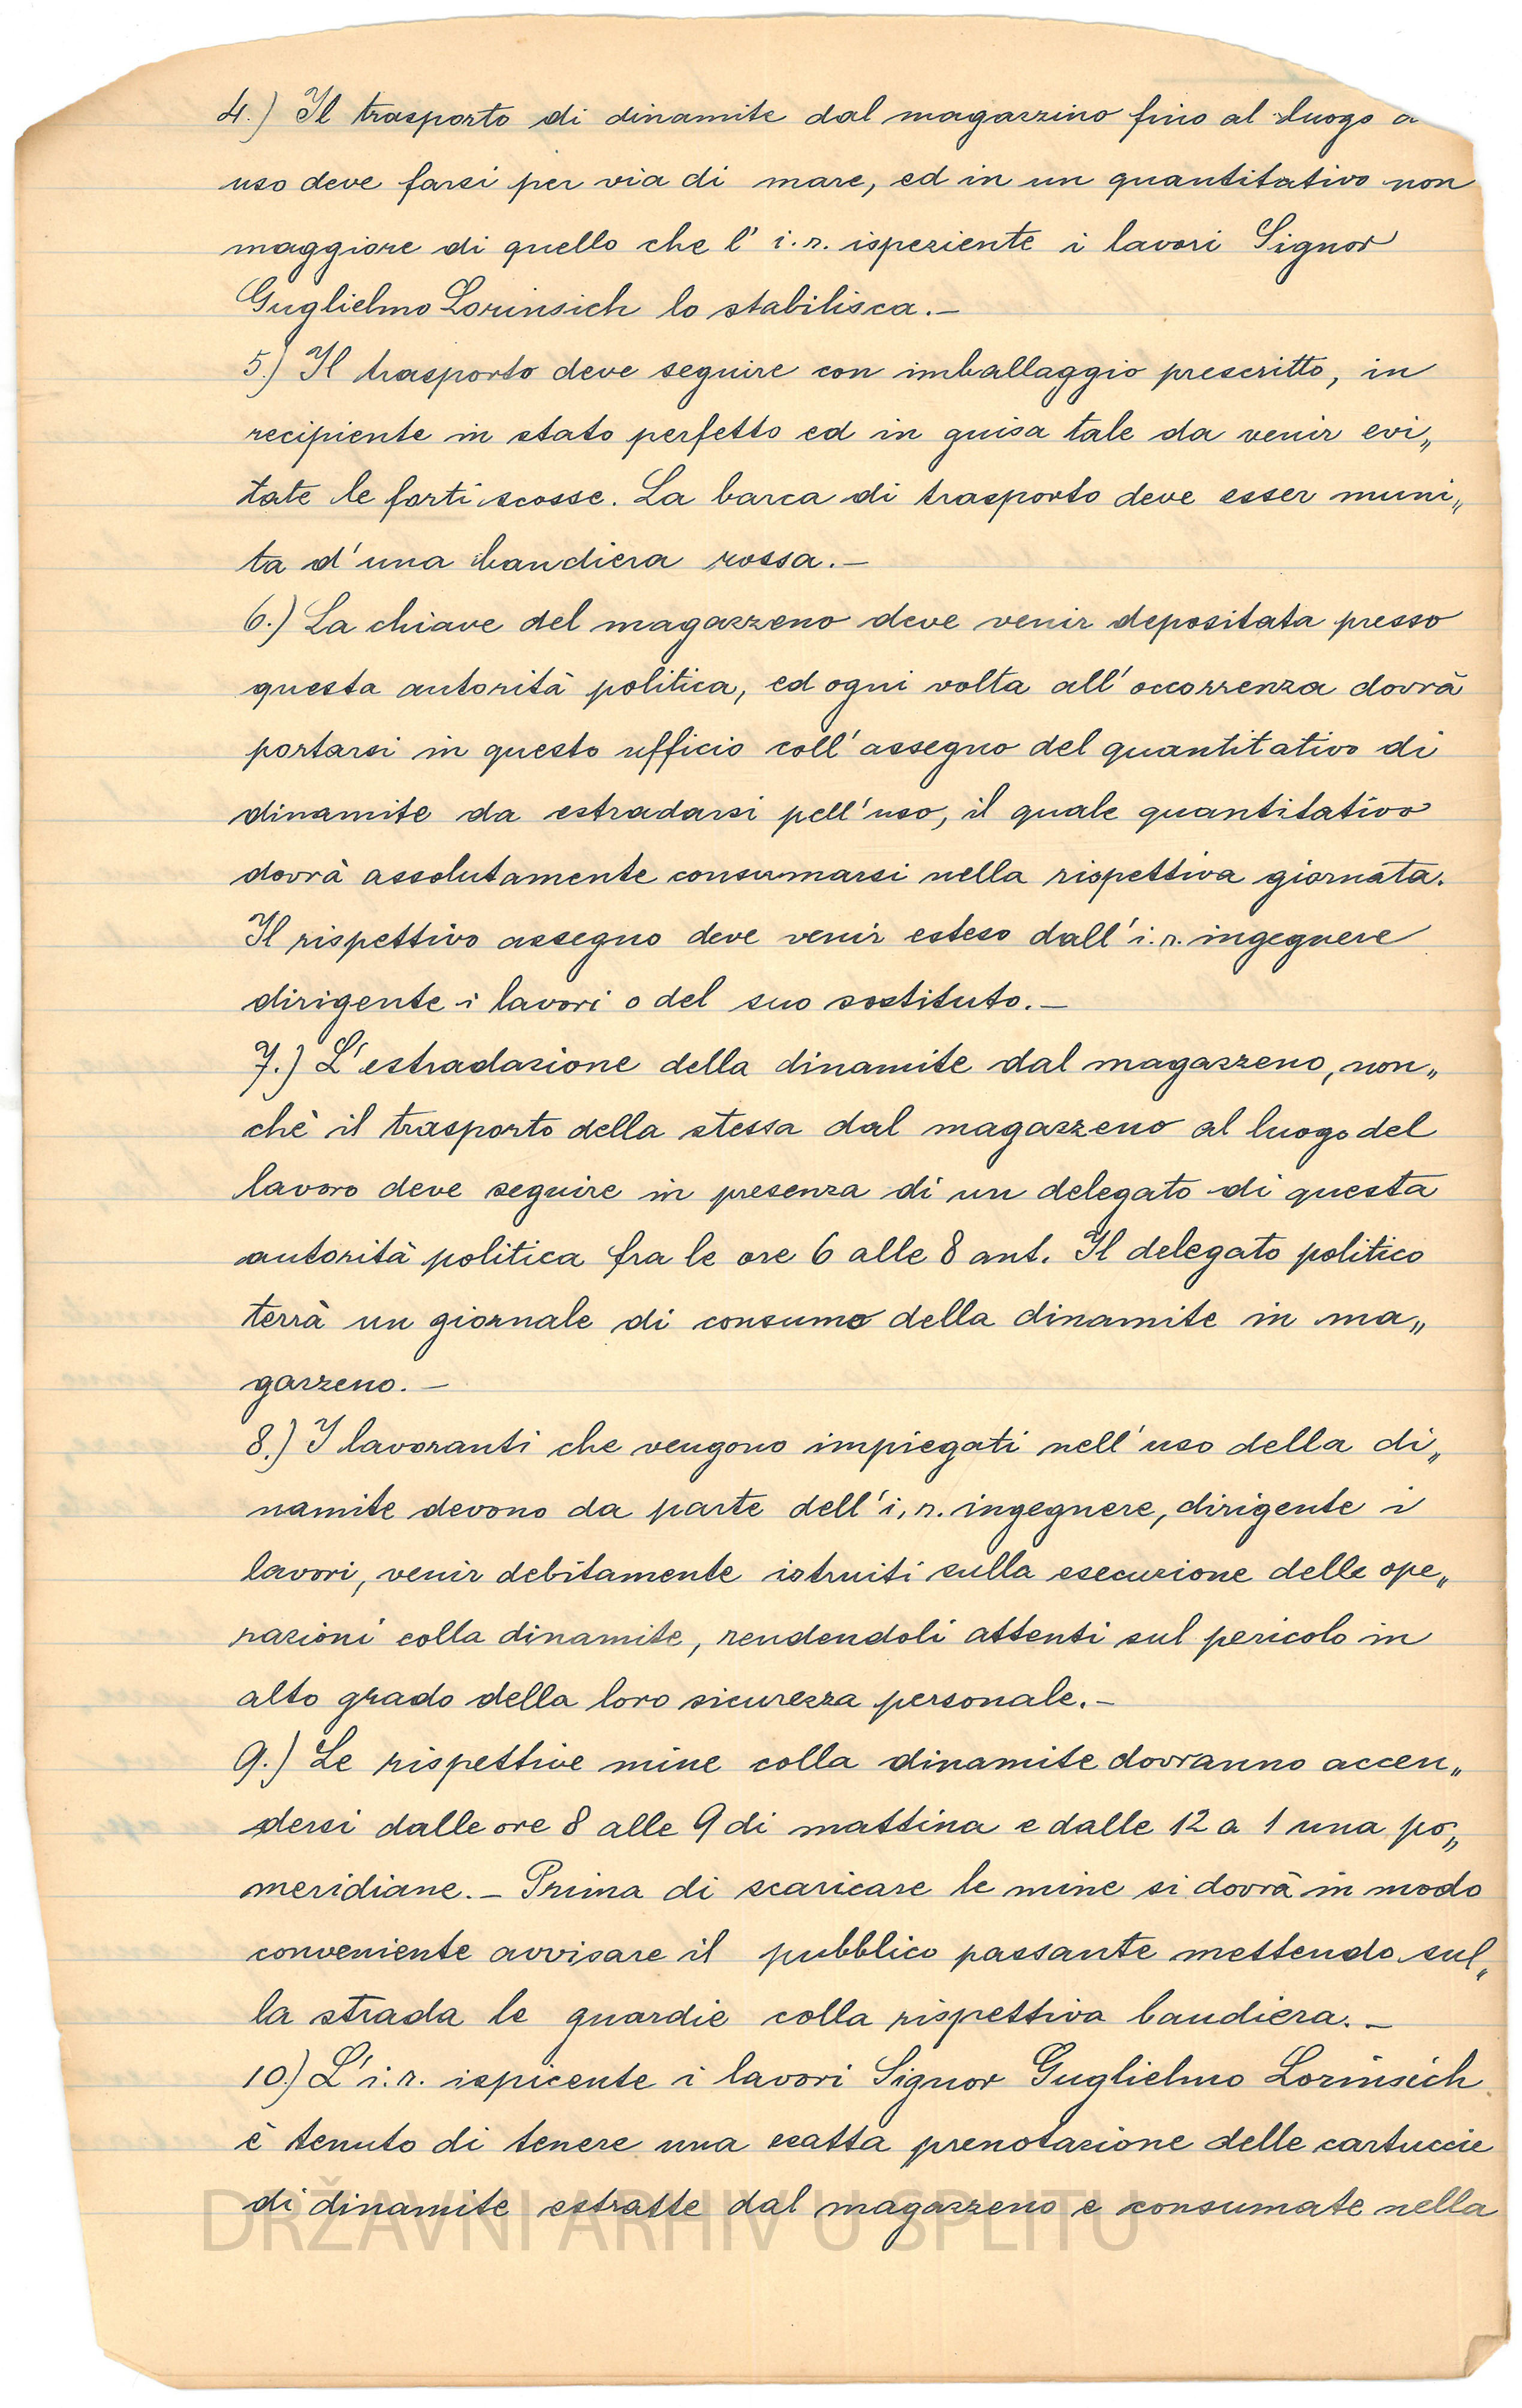 4.) Il trasporto di dinamite dal magazzino fino al luogo
uso deve farsi per via di mare, ed in un quantitativo non
maggiore di quello che l' i.r. ispeziente i lavori Signor
Guglielmo Lorinsich lo stabilisca.—
5.) Il trasporto deve seguire con imballaggio prescritto, in
recipiente in stato perfetto ed in guisa tale da venir evi„
tate le forti scosse. La barca di trasporto deve esser muni„
ta d'una bandiera rossa.—
6.) La chiave del magazzeno deve venir depositata presso
questa autorità politica, ed ogni volta all'occorrenza dovrà
portarsi in questo ufficio coll'assegno del quantitativo di
dinamite da estradarsi pell'uso, il quale quantitativo
dovrà assolutamente consumarsi nella rispettiva giornata.
Il rispettivo assegno deve venir esteso dall'i.r. ingegnere
dirigente i lavori o del suo sostituto.—
7.) L'estradazione della dinamite dal magazzeno, non„
chè il trasporto della stessa dal magazzeno al luogo del
lavoro deve seguire in presenza di un delegato di questa
autorità politica fra le ore 6 alle 8 ant. Il delegato politico
terrà un giornale di consumo della dinamite in ma„
gazzeno.—
8.) I lavoranti che vengono impiegati nell'uso della di„
namite devono da parte dell'i.r. ingegnere, dirigente i
lavori, venir debitamente istruiti sulla esecuzione delle ope„
razioni colla dinamite, rendendoli attenti sul pericolo in
alto grado della loro sicurezza personale.—
9.) Le rispettive mine colla dinamite dovranno accen„
dersi dalle ore 8 alle 9 di mattina e dalle 12 a 1 una po„
meridiane.— Prima di scaricare le mine si dovrà in modo
conveniente avvisare il pubblico passante mettendo sul„
la strada le guardie colla rispettiva bandiera.—
10.) L'i.r. ispicente i lavori Signor Guglielmo Lorinsich
è tenuto di tenere una esatta prenotazione delle cartuccie
di dinamite estratte dal magazzeno e consumate nella
DRŽAVNI ARHIV U SPLITU